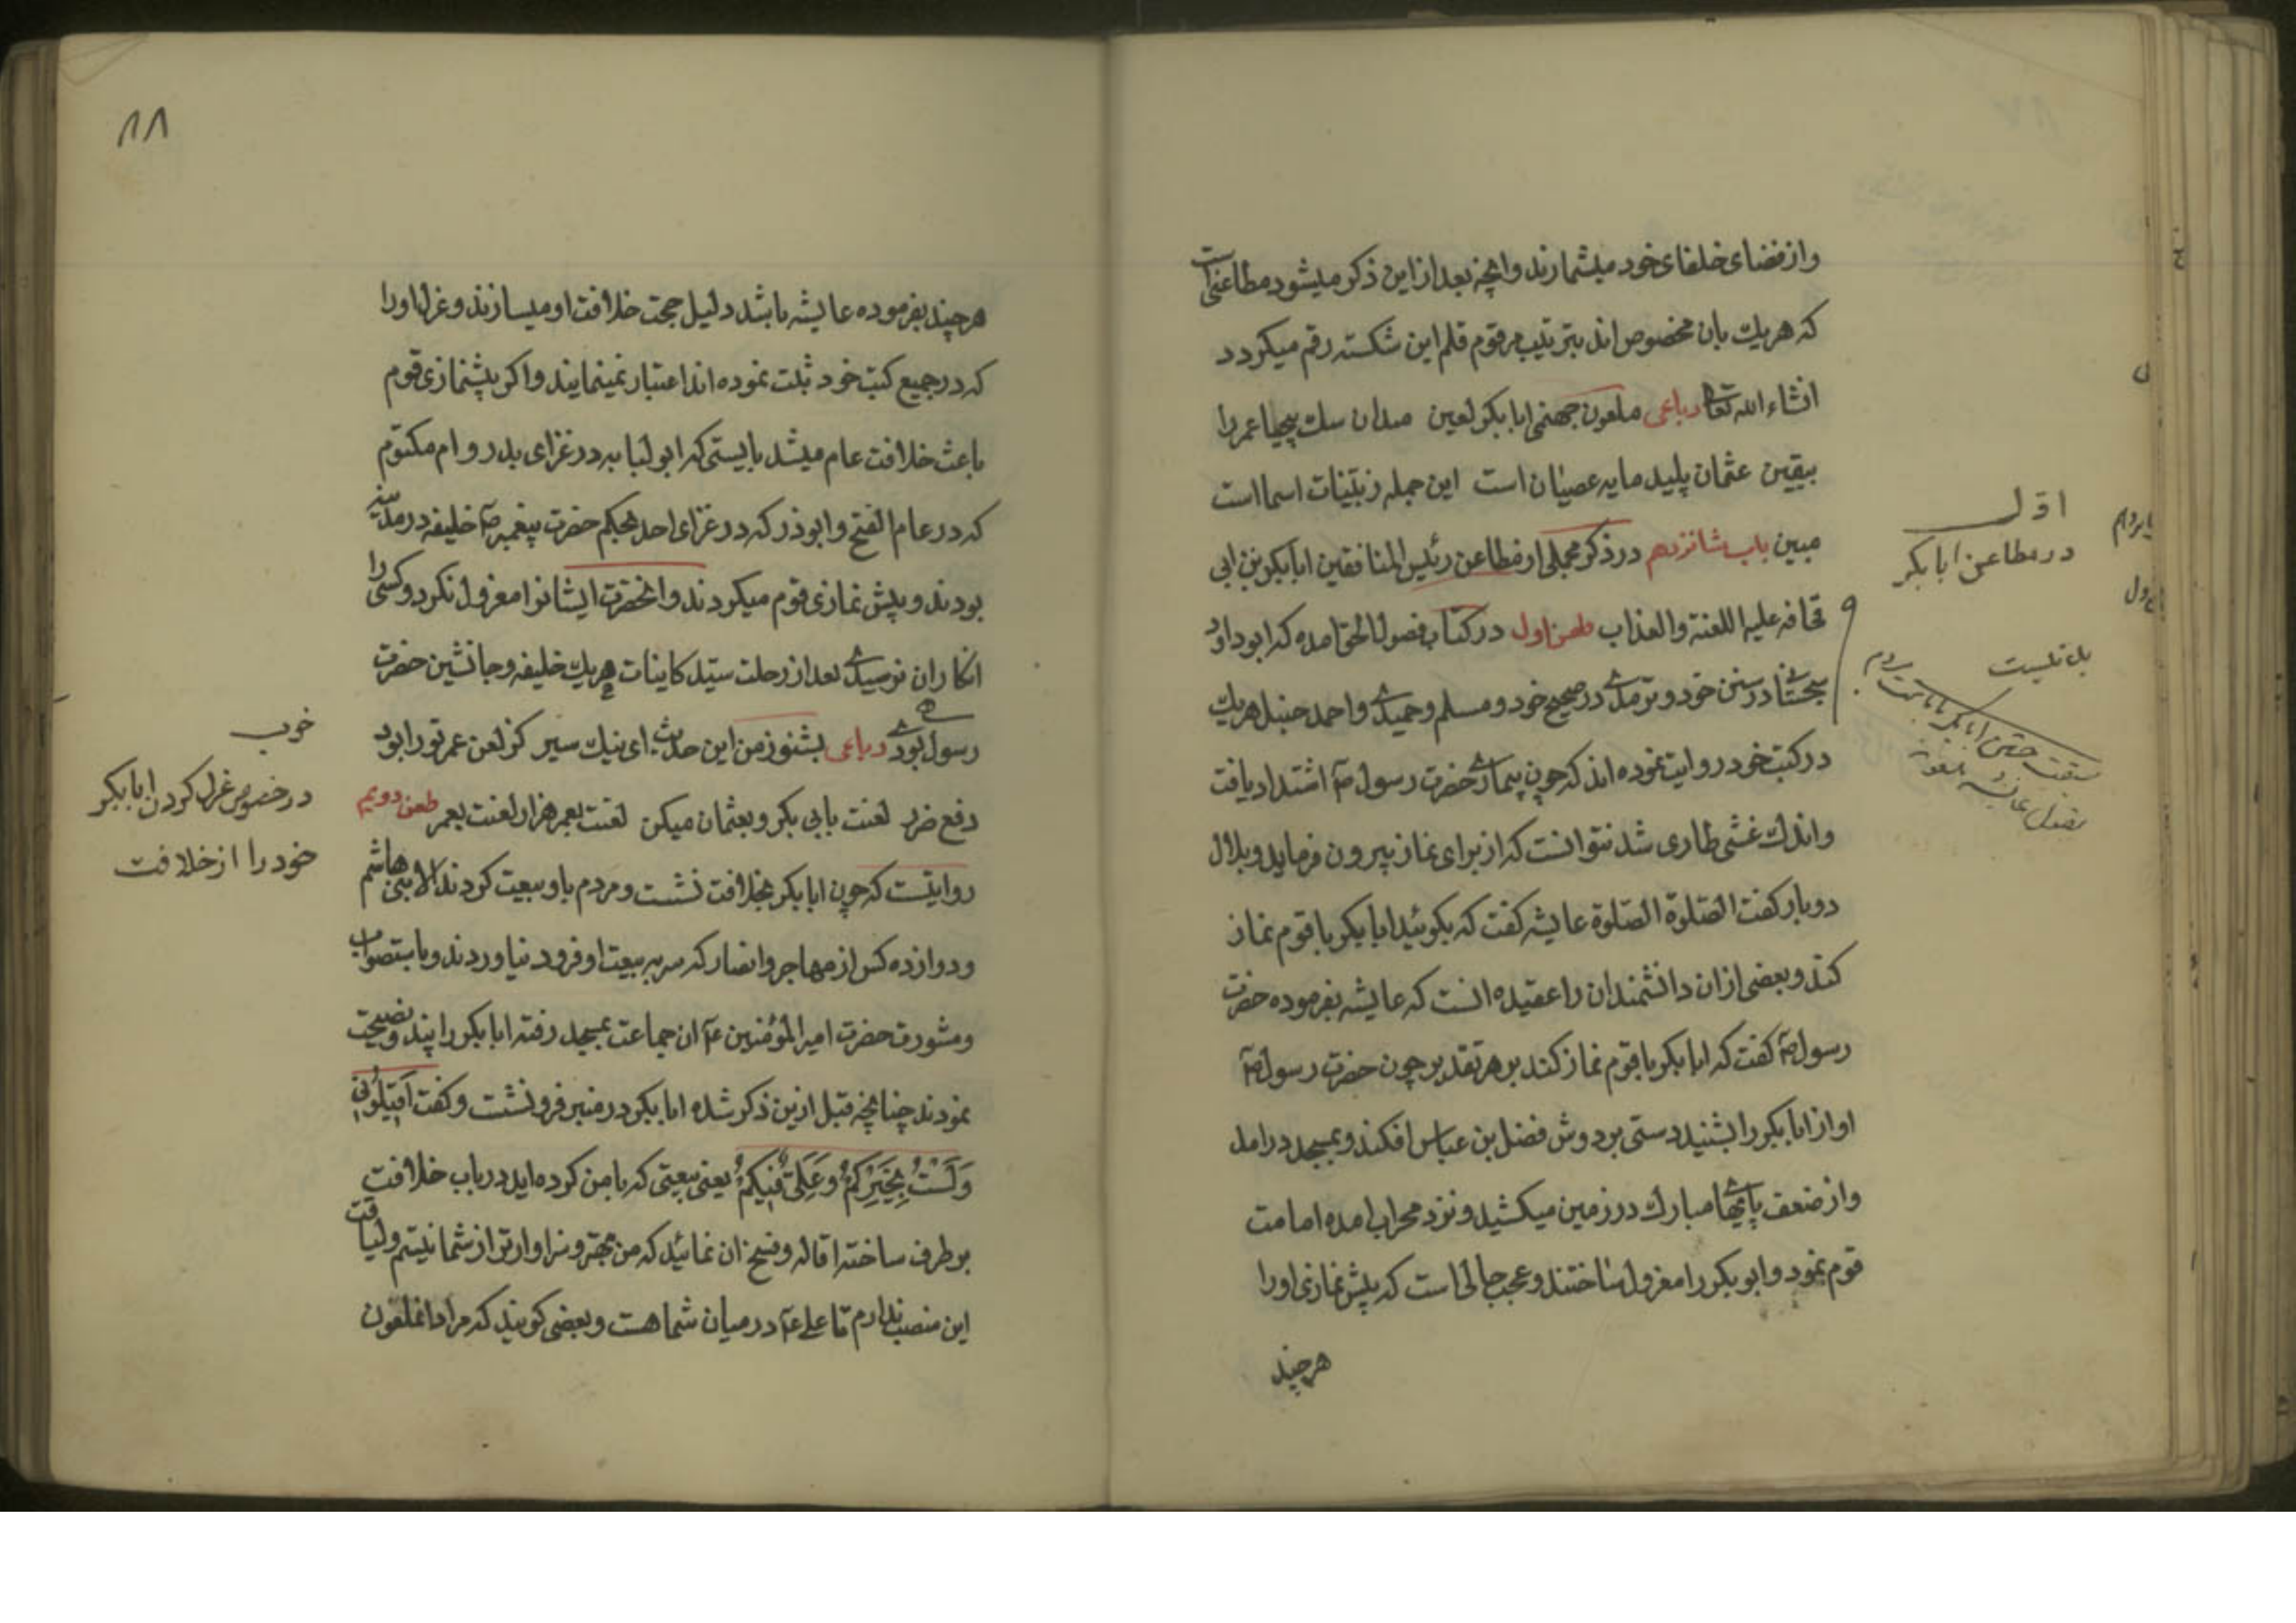 و از فضای خلفای خود میشمارند و انچه بعد از این ذکر میشود مطاعنی است
که هر یک بان مخصوص اند بترتیب مرقوم قلم این شکسته رقم میکردد
انشاء الله تعالی رباعی ملعون جهنمی ابابکر لعین میدان سک بیحیا عمر را
بیقین عثمان پلید مایه عصیان است این جمله ز بینات اسما است
مبین باب شانزدهم در ذکر مجملی از مطاعن رئیس المنافقین ابابکر بن ابی
قحافه علیه اللعنة والعذاب طعن اول در کتاب فصول الحق امده که ابو داود
سجستانی در سنن خود و ترمدی در صحیح خود و مسلم و حمیدی و احمد حنبل هریک
در کتب خود روایت نموده اند که چون بیماری حضرت رسول ص اشتداد یافت
و اندک غشی طاری شد نتوانست که از برای نماز بیرون فرماید و بلال
دوبار کفت الصلوة الصلوة عایشه کفت که بکوئید ابابکر با قوم نماز
کند و بعضی از ان دانشمندان را عقیده انست که عایشه بفرموده حضرت
رسول ص کفت که ابابکر با قوم نماز کند بر هر تقدیر چون حضرت رسول ص
اواز ابابکر را بشنید دستی بر دوش فضل بن عباس افکند و بمسجد درامد
و از ضعف پایهای مبارک در زمین میکشید و نزد محراب امده امامت
قوم نمود و ابوبکر را معزول ساختند و عجب حالی است که پیش نمازی او را
هرچند
اول
در مطاعن ابابکر
۸۸
هرچند بفرموده عایشه باشد دلیل حجت خلافت او میسازند و عزل او را
که در جمیع کتب خود ثبت نموده اند اعتبار نمینمایند و اکر پیشنمازی قوم
باعث خلافت عام میشد بایستی که ابو لبابه در غزای بدر و ام مکتوم
که در عام الفتح و ابوذر که در غزای احد بحکم حضرت پیغمبر ص خلیفه در مدینه
بودند و پیش نمازی قوم میکردند و انحضرت ایشانرا معزول نکرد و کسی را
انکار ان نرسیدی بعد از رحلت سید کاینات هریک خلیفه و جانشین حضرت
رسول بودی رباعی بشنو ز من این حدیث ای نیک سیر کز لعن عمر تو را بود
دفع ضرر لعنت بابی بکر و بعثمان میکن لعنت بعمر هزار لعنت بعمر طعن دویم
روایتست که چون ابابکر بخلافت نشست و مردم باو بیعت کردند الا بنی هاشم
و دوازده کس از مهاجر و انصار که سر به بیعت او فرود نیاوردند و باستصواب
و مشورت حضرت امیر المؤمنین ع ان جماعت بمسجد رفته ابابکر را پند و نصیحت
نمودند چنانچه قبل ازین ذکر شده ابابکر در منبر فرو نشست و کفت اقیلونی
وَلَسْتُ بِخَیْرِکُمْ وَعَلِیٌّ فیکُمْ یعنی بیعتی که با من کرده اید در باب خلافت
بر طرف ساخته اقاله و فسخ ان نمائید که من بهتر و سزاوارتر از شما نیستم و لیاقت
این منصب ندارم تا علی ع در میان شما هست و بعضی کویند که مراد انملعون
خوب
در خصوص عزل کردن ابابکر
خود را از خلافت